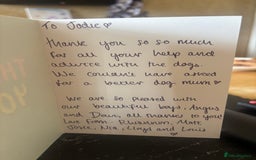 To Jodie ♡
Thank you so so much
for all your help and
advice with the dogs.
We couldn't have asked
for a better dog mum ♡
We are so pleased with
our beautiful boys, Angus
and Doui, all thanks to you!
Love from Rhiannon, Matt
Josie, Nia, Lloyd and Louis